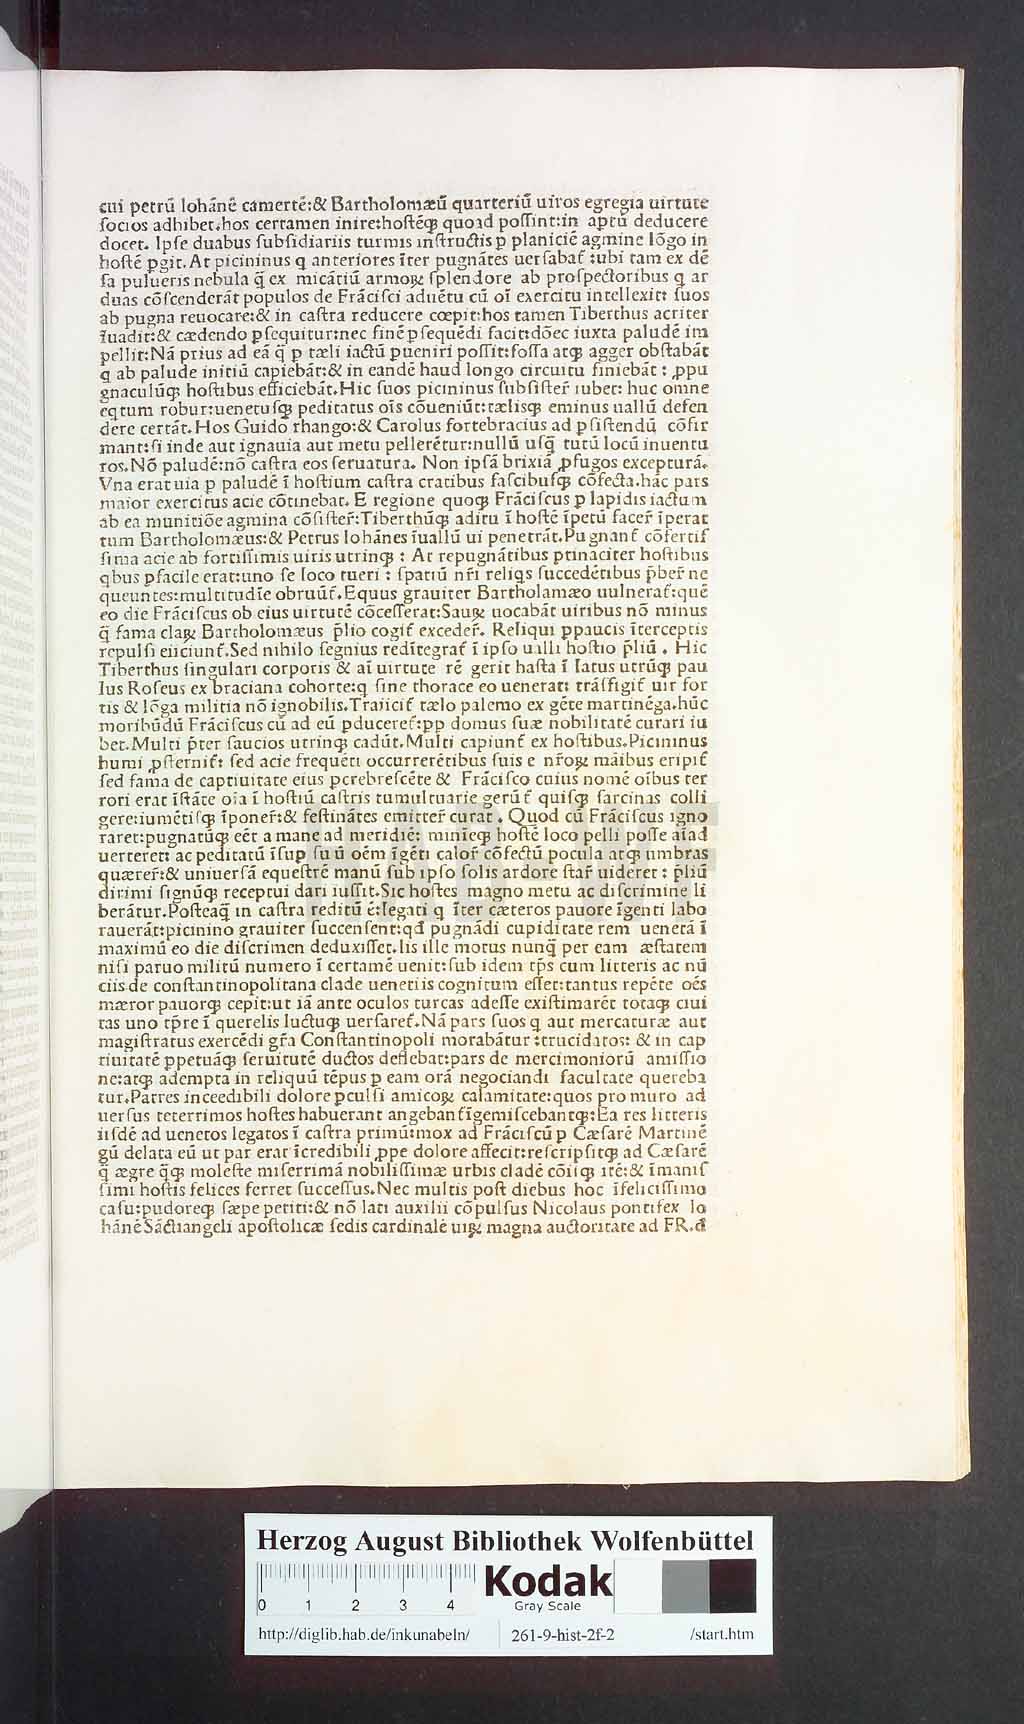 cui petrũ Iohãnẽ camertẽ:& Bartholomæũ quarteriũ uiros egregia uirtute
ſocios adhibet.hos certamen inire:hoſtẽqꝫ quoad poſſint:in aptũ deducere
docet. Ipſe duabus ſubſidiariis turmis inſtructis ꝑ planiciẽ agmine lõgo in
hoſtẽ ꝑgit. At picininus q anteriores ĩter pugnãtes uerſabat᷑:ubi tam ex dẽ
ſa pulueris nebula q̃ ex micãtiũ armoꝝ ſplendore ab proſpectoribus q ar
duas cõſcenderãt populos de Frãciſci aduẽtu cũ oĩ exercitu intellexit: ſuos
ab pugna reuocare:& in caſtra reducere cœpit:hos tamen Tiberthus acriter
ĩuadit:& cædendo ꝑſequitur:nec finẽ ꝑſequẽdi facit:dõec iuxta paludẽ im
pellit:Nã prius ad eã q̃ ꝑ tæli iactũ ꝑueniri poſſit:foſſa atqꝫ agger obſtabãt
q ab palude initiũ capiebãt:& in eandẽ haud longo circuitu finiebãt: ꝓpu
gnaculũqꝫ hoſtibus efficiebãt.Hic ſuos picininus ſubſiſter̃ iubet: huc omne
eqtum robur:uenetuſqꝫ peditatus oĩs cõueniũt:tæliſqꝫ eminus uallũ defen
dere certãt. Hos Guido rhango:& Carolus fortebracius ad ꝑſiſtendũ cõfir
mant:ſi inde aut ignauia aut metu pellerẽtur:nullũ uſq̃ tutũ locũ inuentu
ros.Nõ paludẽ:nõ caſtra eos ſeruatura. Non ipſã brixiã ꝓfugos excepturã.
Vna erat uia ꝑ paludẽ ĩ hoſtium caſtra cratibus faſcibuſqꝫ cõfecta.hãc pars
maior exercitus acie cõtinebat. E regione quoqꝫ Frãciſcus ꝑ lapidis iactum
ab ea munitiõe agmina cõſiſter̃:Tiberthũqꝫ aditu ĩ hoſtẽ ĩpetũ facer̃ ĩperat
tum Bartholomæus:& Petrus Iohãnes ĩuallũ ui penetrãt.Pugnant᷑ cõfertiſ
ſima acie ab fortiſſimis uiris utrinqꝫ: At repugnãtibus ꝑtinaciter hoſtibus
qbus ꝑfacile erat:uno ſe loco tueri: ſpatiũ nr̃i reliqs ſuccedẽtibus p̃ber̃ ne
queuntes:multitudĩe obruũt᷑.Equus grauiter Bartholamæo uulnerat᷑:quẽ
eo die Frãciſcus ob eius uirtutẽ cõceſſerat:Sauꝝ uocabãt uiribus nõ minus
q̃ fama claꝝ Bartholomæus p̃lio cogit᷑ exceder̃. Reliqui ꝑpaucis ĩterceptis
repulſi eiiciunt᷑.Sed nihilo ſegnius redĩtegrat᷑ ĩ ipſo ualli hoſtio p̃liũ. Hic
Tiberthus ſingulari corporis & aĩ uirtute rẽ gerit haſta ĩ latus utrũqꝫ pau
lus Roſeus ex braciana cohorte:q ſine thorace eo uenerat: trãſfigit᷑ uir for
tis & lõga militia nõ ignobilis.Traiicit᷑ tælo palemo ex gẽte martinẽga.hũc
moribũdũ Frãciſcus cũ ad eũ ꝑduceret᷑:ꝓp domus ſuæ nobilitatẽ curari iu
bet.Multi p̃ter ſaucios utrinqꝫ cadũt.Multi capiunt᷑ ex hoſtibus.Picininus
humi ꝓſternit᷑: ſed acie frequẽti occurrerẽtibus ſuis e nr̃oꝝ mãibus eripit᷑
ſed fama de captiuitate eius percrebreſcẽte & Frãciſco cuius nomẽ oĩbus ter
rori erat ĩſtãte oĩa ĩ hoſtiũ caſtris tumultuarie gerũt᷑ quiſqꝫ ſarcinas colli
gere:iumẽtiſqꝫ ĩponer̃:& feſtinãtes emitter̃ curat. Quod cũ Frãciſcus igno
raret:pugnatũqꝫ eẽt a mane ad meridiẽ: minieqꝫ hoſtẽ loco pelli poſſe aĩad
uerteret: ac peditatũ ĩſuꝑ ſuũ oẽm ĩgẽti calor̃ cõfectũ pocula atqꝫ umbras
quærer̃:& uniuerſã equeſtrẽ manũ ſub ipſo ſolis ardore ſtar̃ uideret: p̃liũ
dirimi ſignũqꝫ receptui dari iuſſit.Sic hoſtes magno metu ac diſcrimine li
berãtur.Poſteaq̃ in caſtra reditũ ẽ:legati q ĩter cæteros pauore ĩgenti labo
rauerãt:picinino grauiter ſuccenſent:qđ pugnãdi cupiditate rem uenetã ĩ
maximũ eo die diſcrimen deduxiſſet.Iis ille motus nunq̃ per eam æſtatem
niſi paruo militũ numero ĩ certamẽ uenit:ſub idem tp̃s cum litteris ac nũ
ciis de conſtantinopolitana clade uenetiis cognitum eſſet:tantus repẽte oẽs
mæror pauorqꝫ cepit:ut iã ante oculos turcas adeſſe exiſtimarẽt totaqꝫ ciui
tas uno tp̃re ĩ querelis luctuqꝫ uerſaret᷑.Nã pars ſuos q aut mercaturæ aut
magiſtratus exercẽdi gr̃a Conſtantinopoli morabãtur:trucidatos: & in cap
tiuitatẽ ꝑpetuãqꝫ ſeruitutẽ ductos deflebat:pars de mercimoniorũ amiſſio
ne:atqꝫ adempta in reliquũ tẽpus ꝑ eam orã negociandi facultate quereba
tur.Patres inceedibili dolore ꝑculſi amicoꝝ calamitate:quos pro muro ad
uerſus teterrimos hoſtes habuerant angebant᷑ ĩgemiſcebantqꝫ:Ea res litteris
iiſdẽ ad uenetos legatos ĩ caſtra primũ:mox ad Frãciſcũ ꝑ Cæſarẽ Martinẽ
gũ delata eũ ut par erat ĩcredibili ꝓpe dolore affecit:reſcripſitqꝫ ad Cæſarẽ
q̃ ægre q̃qꝫ moleſte miſerrimã nobiliſſimæ urbis cladẽ cõiiqꝫ itẽ:& ĩmaniſ
ſimi hoſtis felices ferret ſucceſſus.Nec multis poſt diebus hoc ĩfeliciſſimo
caſu:pudoreqꝫ ſæpe petiti:& nõ lati auxilii cõpulſus Nicolaus pontifex Io
hãnẽ Sãctiangeli apoſtolicæ ſedis cardinalẽ uiꝝ magna auctoritate ad FR.đ
HAB WF
Herzog August Bibliothek Wolfenbüttel
0 1 2 3 4
Kodak
Gray Scale
http://diglib.hab.de/inkunabeln/ 261-9-hist-2f-2 /start.htm